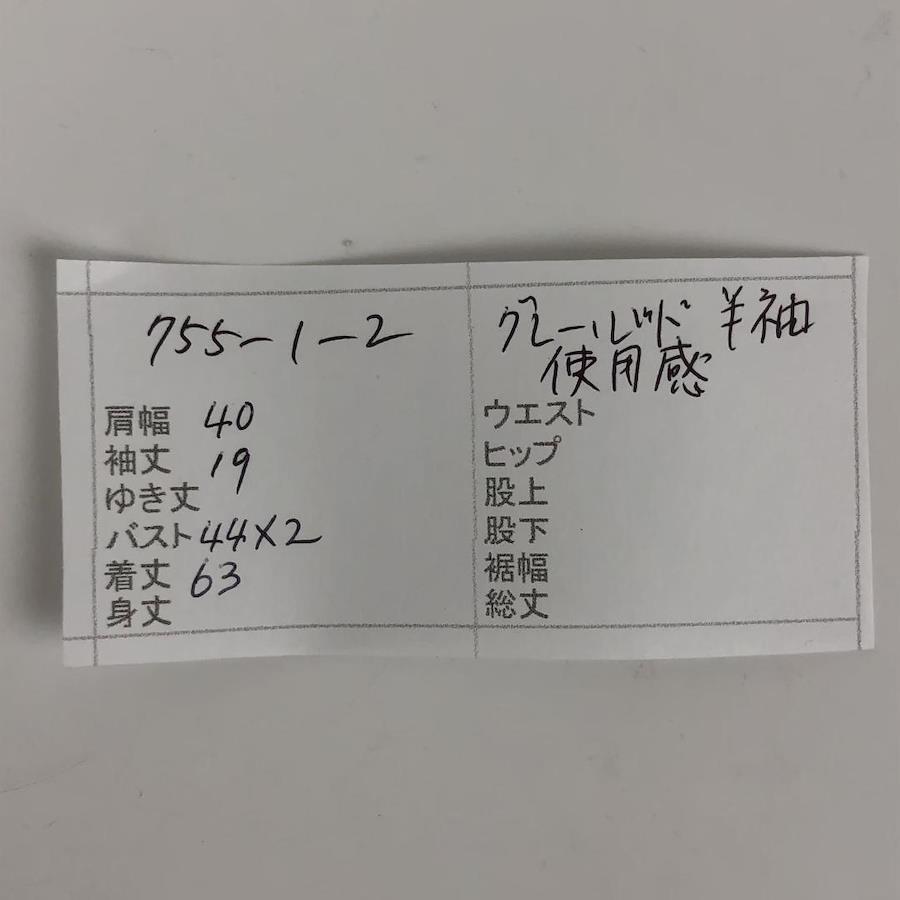 755-1-2
肩幅 40
袖丈 19
ゆき丈
バスト 44×2
着丈 63
身丈
半袖
使用感
ウエスト
ヒップ
股上
股下
裾幅
総丈